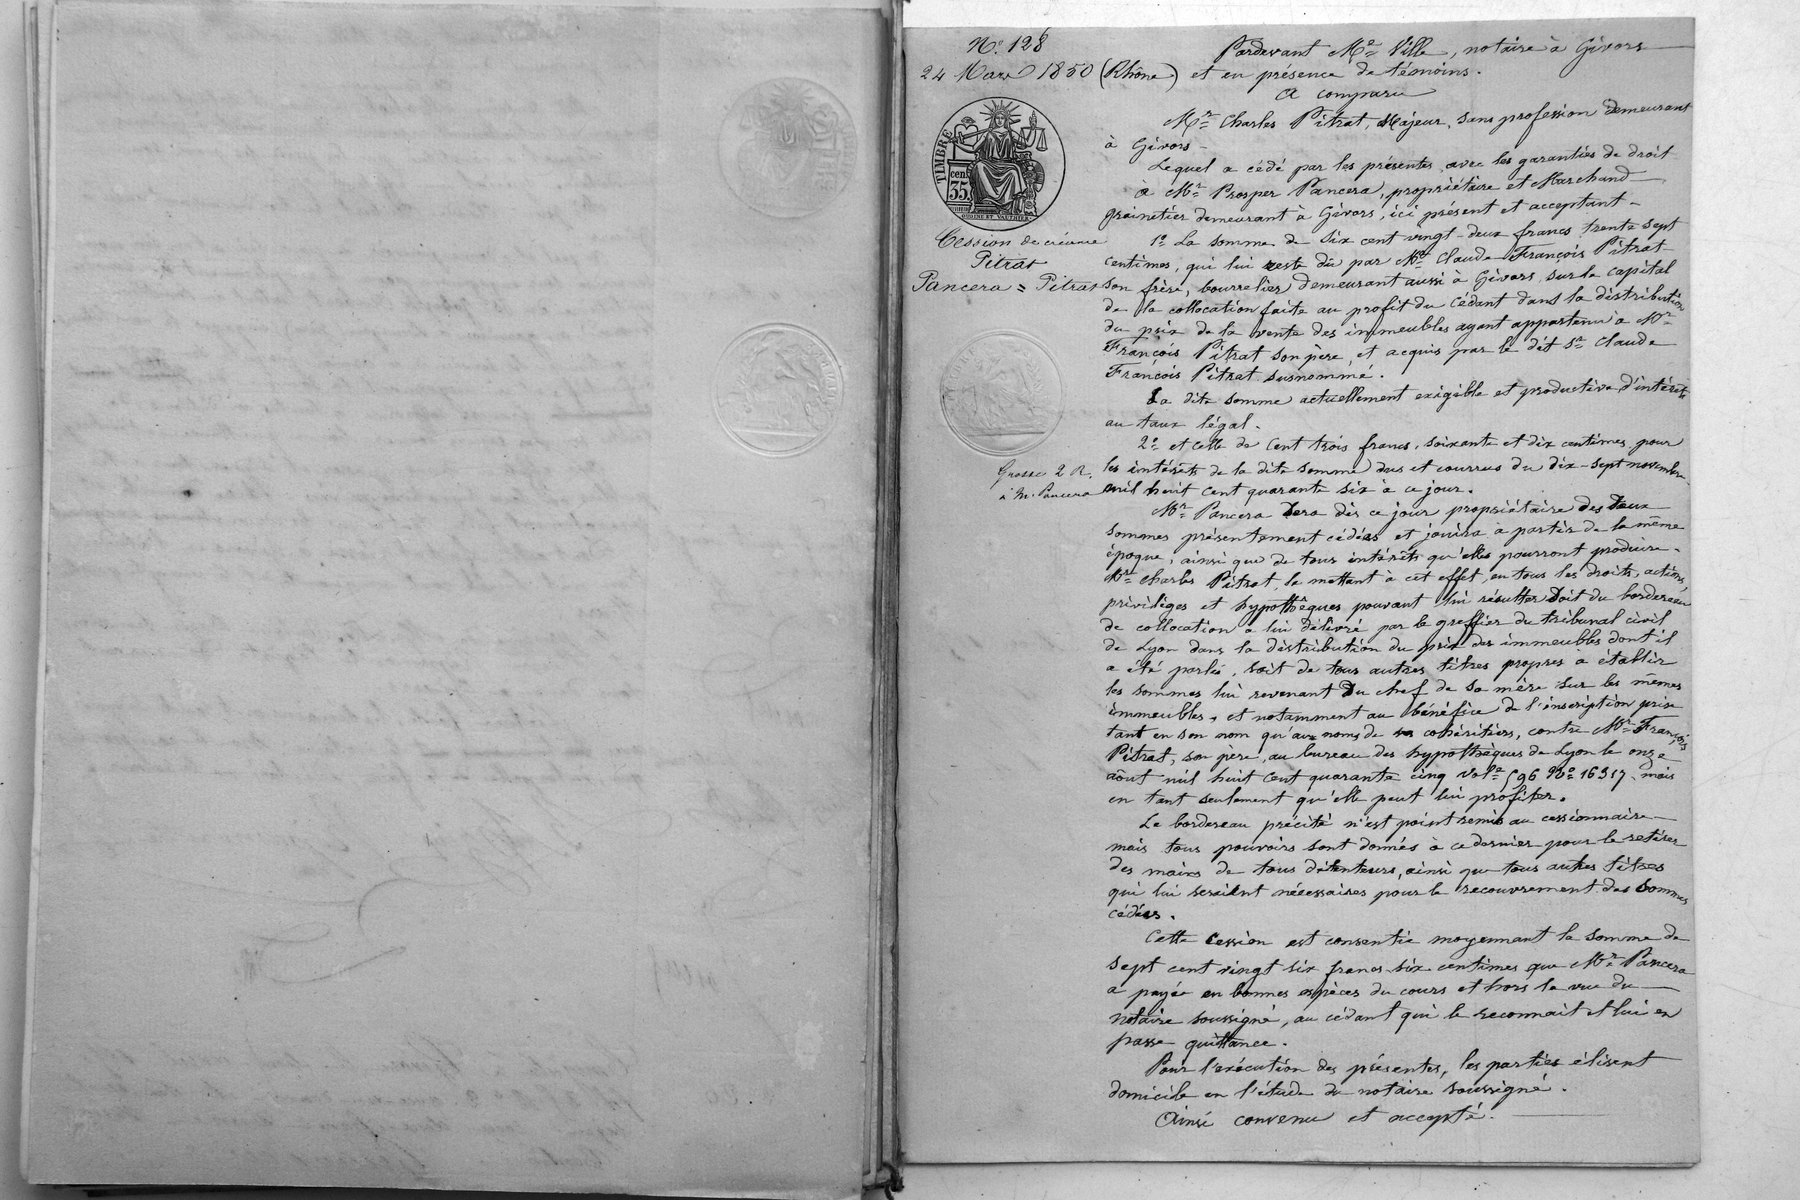 N° 128
24 Mars 1850
TIMBRE
cent
35
Cession de créance
Pitrat
Pancera = Pitrat
Grosse 2 R.
à Mr Pancera
Pardevant Me Ville, notaire à Givors
(Rhône) et en présence de témoins.
A comparu
Mr Charles Pitrat, Majeur, sans profession demeurant
à Givors
Lequel a cédé par les présentes avec les garanties de droit
à Mr Prosper Pancera, propriétaire et Marchand
grainetier demeurant à Givors, ici présent et acceptant
1° La somme de six cent vingt-deux francs trente sept
centimes, qui lui reste dû par Mr Claude François Pitrat
son frère, bourrelier demeurant aussi à Givors, sur le capital
de la collocation faite au profit du cédant dans la distribution
du prix de la vente des immeubles ayant appartenu à Mr
François Pitrat son père, et acquis par le dit Sr Claude
François Pitrat susnommé.
La dite somme actuellement exigible et productive d'intérêts
au taux légal.
2° et celle de Cent trois francs, soixante et dix centimes pour
les intérêts de la dite somme dus et courrus du dix-sept novembre
mil huit cent quarante six à ce jour.
Mr Pancera sera dès ce jour propriétaire des deux
sommes présentement cédées et jouira à partir de la même
époque, ainsi que de tous intérêts qu'elles pourront produire.
Mr Charles Pitrat le mettant à cet effet, en tous les droits, actions,
privilèges et hypothèques pouvant lui résulter soit du bordereau
de collocation a lui délivré par le greffier du tribunal civil
de Lyon dans la distribution du prix des immeubles dont il
a été parlé, soit de tous autres titres propres à établir
les sommes lui revenant du chef de sa mère sur les mêmes
immeubles, et notamment au bénéfice de l'inscription prise
tant en son nom qu'aux noms de cohéritiers, contre Mr François
Pitrat, son père, au bureau des hypothèques de Lyon le onze
août mil huit cent quarante cinq vol. 596 No 16317, mais
en tant seulement qu'elle peut lui profiter.
Le bordereau précité n'est point remis au cessionnaire
mais tous pouvoirs sont donnés à ce dernier pour le retirer
des mains de tous détenteurs, ainsi que tous autres titres
qui lui seraient nécessaires pour le recouvrement des sommes
cédées.
Cette cession est consentie moyennant la somme de
sept cent vingt six francs six centimes que Mr Pancera
a payée en bonnes espèces du cours et hors la vue du
notaire soussigné, au cédant qui le reconnait et lui en
passe quittance.
Pour l'exécution des présentes, les parties élisent
domicile en l'étude du notaire soussigné.
Ainsi convenu et accepté.